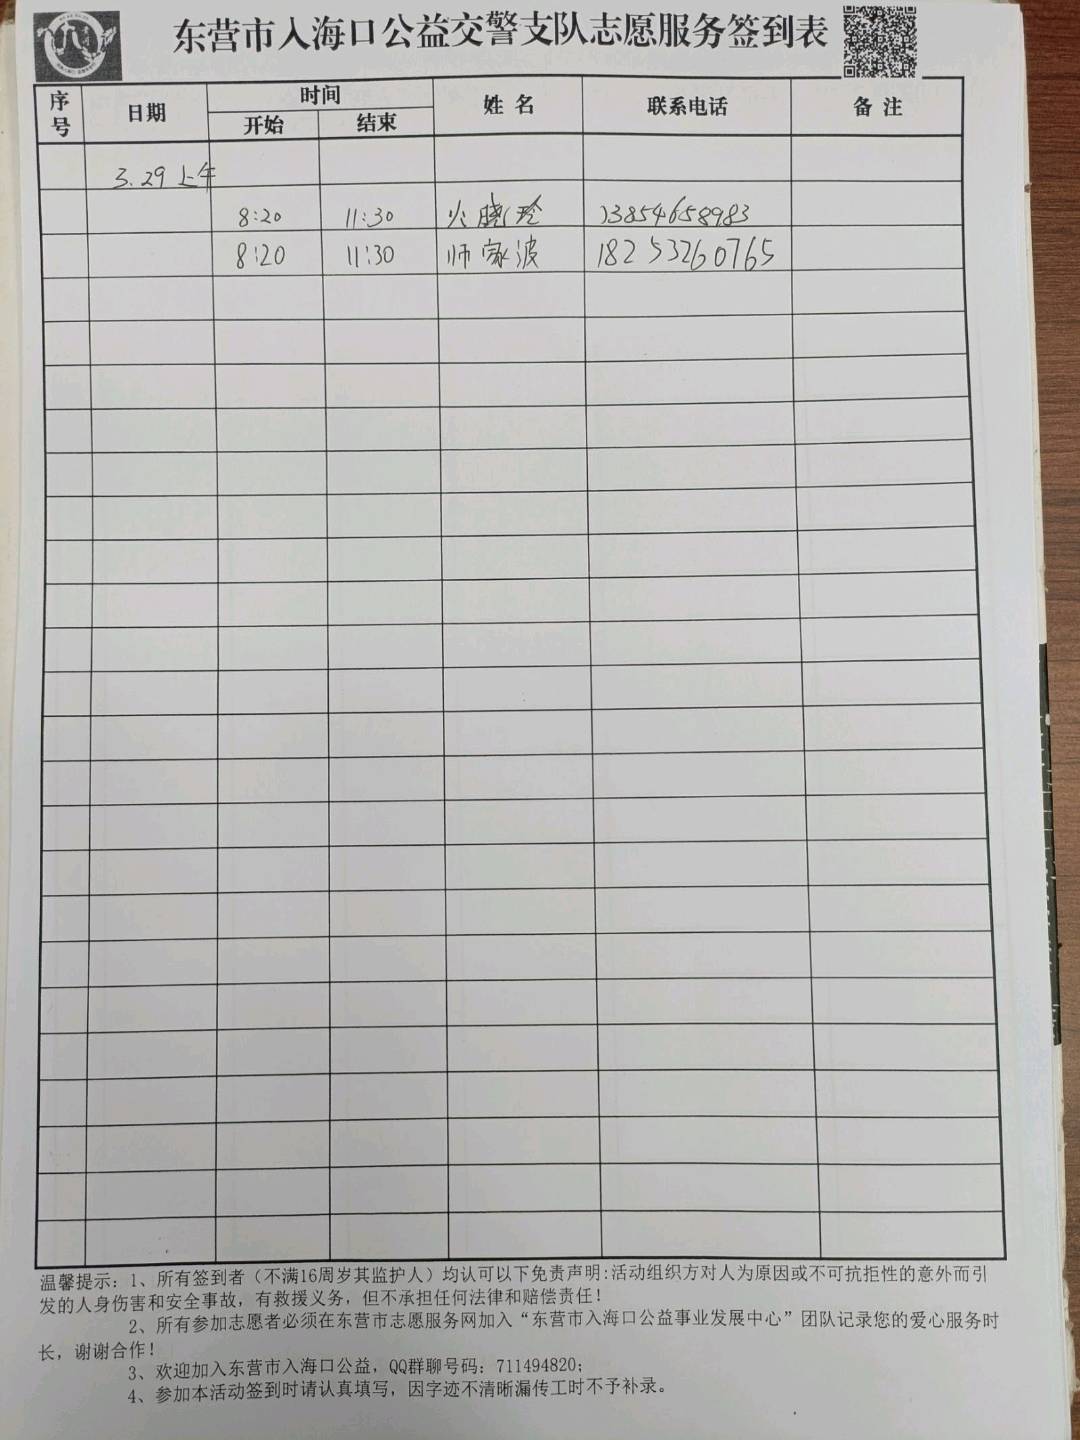 东营市入海口公益交警支队志愿服务签到表
序号 日期 时间 姓名 联系电话 备注
开始 结束
3.29 上午
8:20 11:30 火晓玲 13854658983
8:20 11:30 师家波 18253260765
温馨提示：1、所有签到者（不满16周岁其监护人）均认可以下免责声明:活动组织方对人为原因或不可抗拒性的意外而引
发的人身伤害和安全事故，有救援义务，但不承担任何法律和赔偿责任！
2、所有参加志愿者必须在东营市志愿服务网加入“东营市入海口公益事业发展中心”团队记录您的爱心服务时
长，谢谢合作！
3、欢迎加入东营市入海口公益，QQ群聊号码：711494820；
4、参加本活动签到时请认真填写，因字迹不清晰漏传工时不予补录。